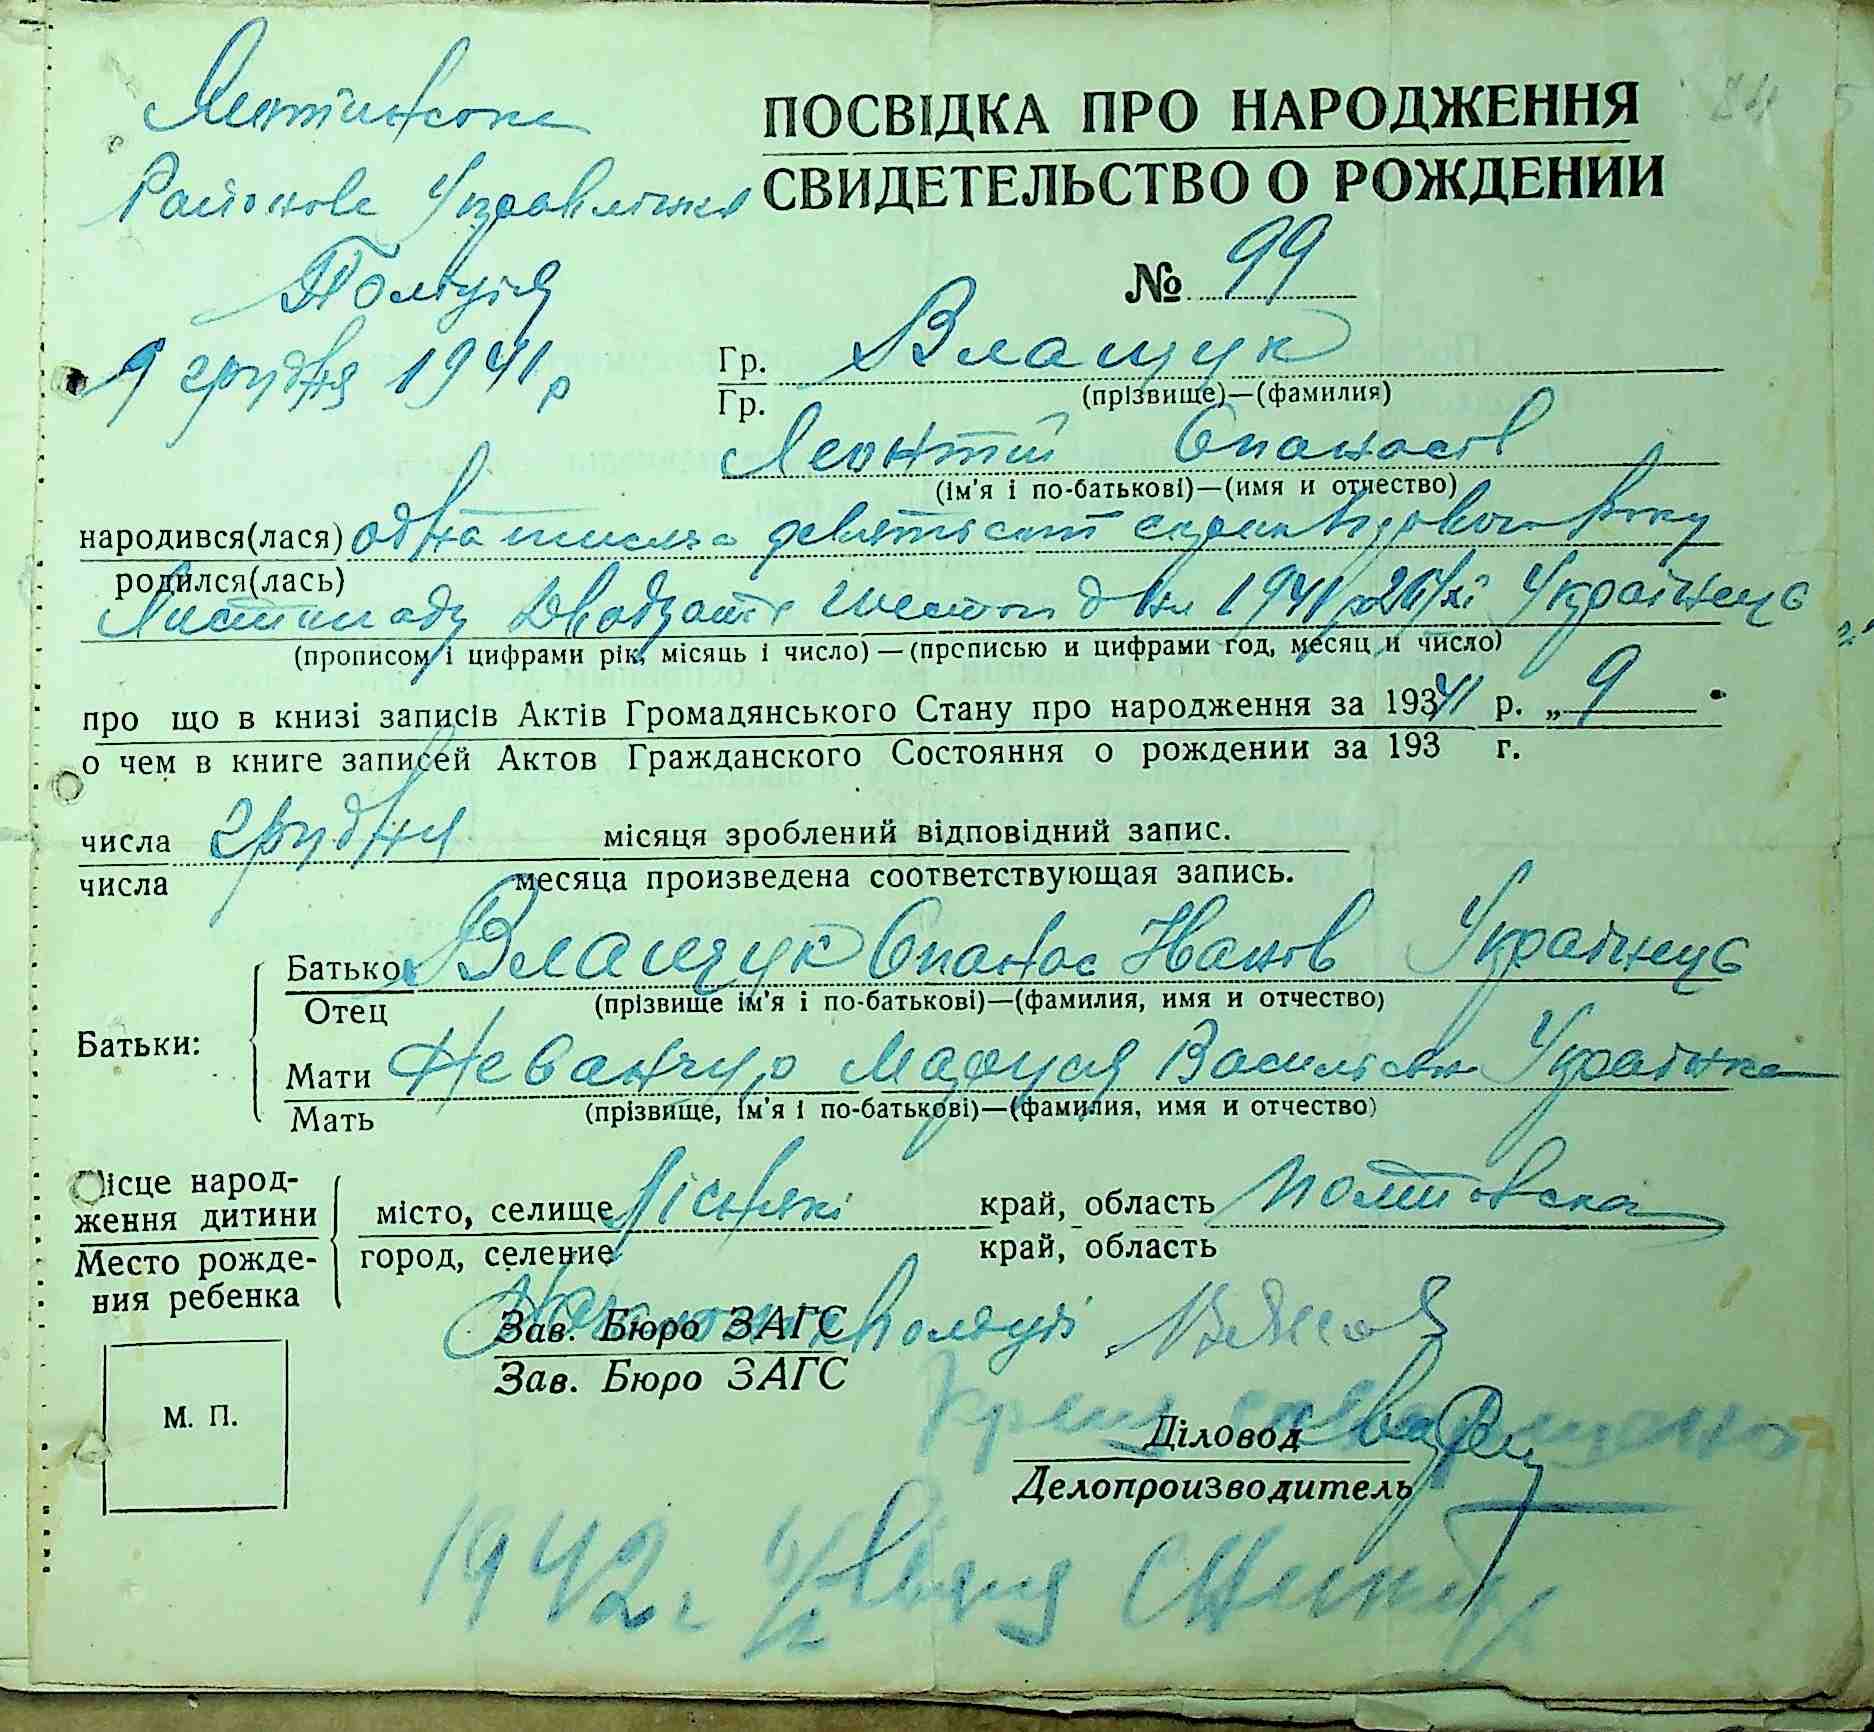 Районове Управління
Поліція
9 грудня 1941 р
84
ПОСВІДКА ПРО НАРОДЖЕННЯ
СВИДЕТЕЛЬСТВО О РОЖДЕНИИ
№ 99
Гр. Влащук
Гр. (прізвище)—(фамилия)
Леонтій Опанасів
(ім'я і по-батькові)—(имя и отчество)
народився(лася) одна тисяча девятьсот року
родился(лась)
Листопаду двадцать шестого дня 1941 р 26/XI Українец
(прописом і цифрами рік, місяць і число) — (прописью и цифрами год, месяц и число)
про що в книзі записів Актів Громадянського Стану про народження за 19341 р. „ 9
о чем в книге записей Актов Гражданского Состояния о рождении за 193 г.
числа грудня місяця зроблений відповідний запис.
числа месяца произведена соответствующая запись.
Батьки:
Батько Влащук Опанас Иванов Українец
Отец (прізвище ім'я і по-батькові)—(фамилия, имя и отчество)
Мати Маруся Василівн Українка
Мать (прізвище, ім'я і по-батькові)—(фамилия, имя и отчество)
Місце народ-
ження дитини
Место рожде-
ния ребенка
місто, селище Лісняки край, область Полтовска
город, селение край, область
Зав. Бюро ЗАГС Поліції
Зав. Бюро ЗАГС
М. П.
Діловод
Делопроизводитель
1942 г.